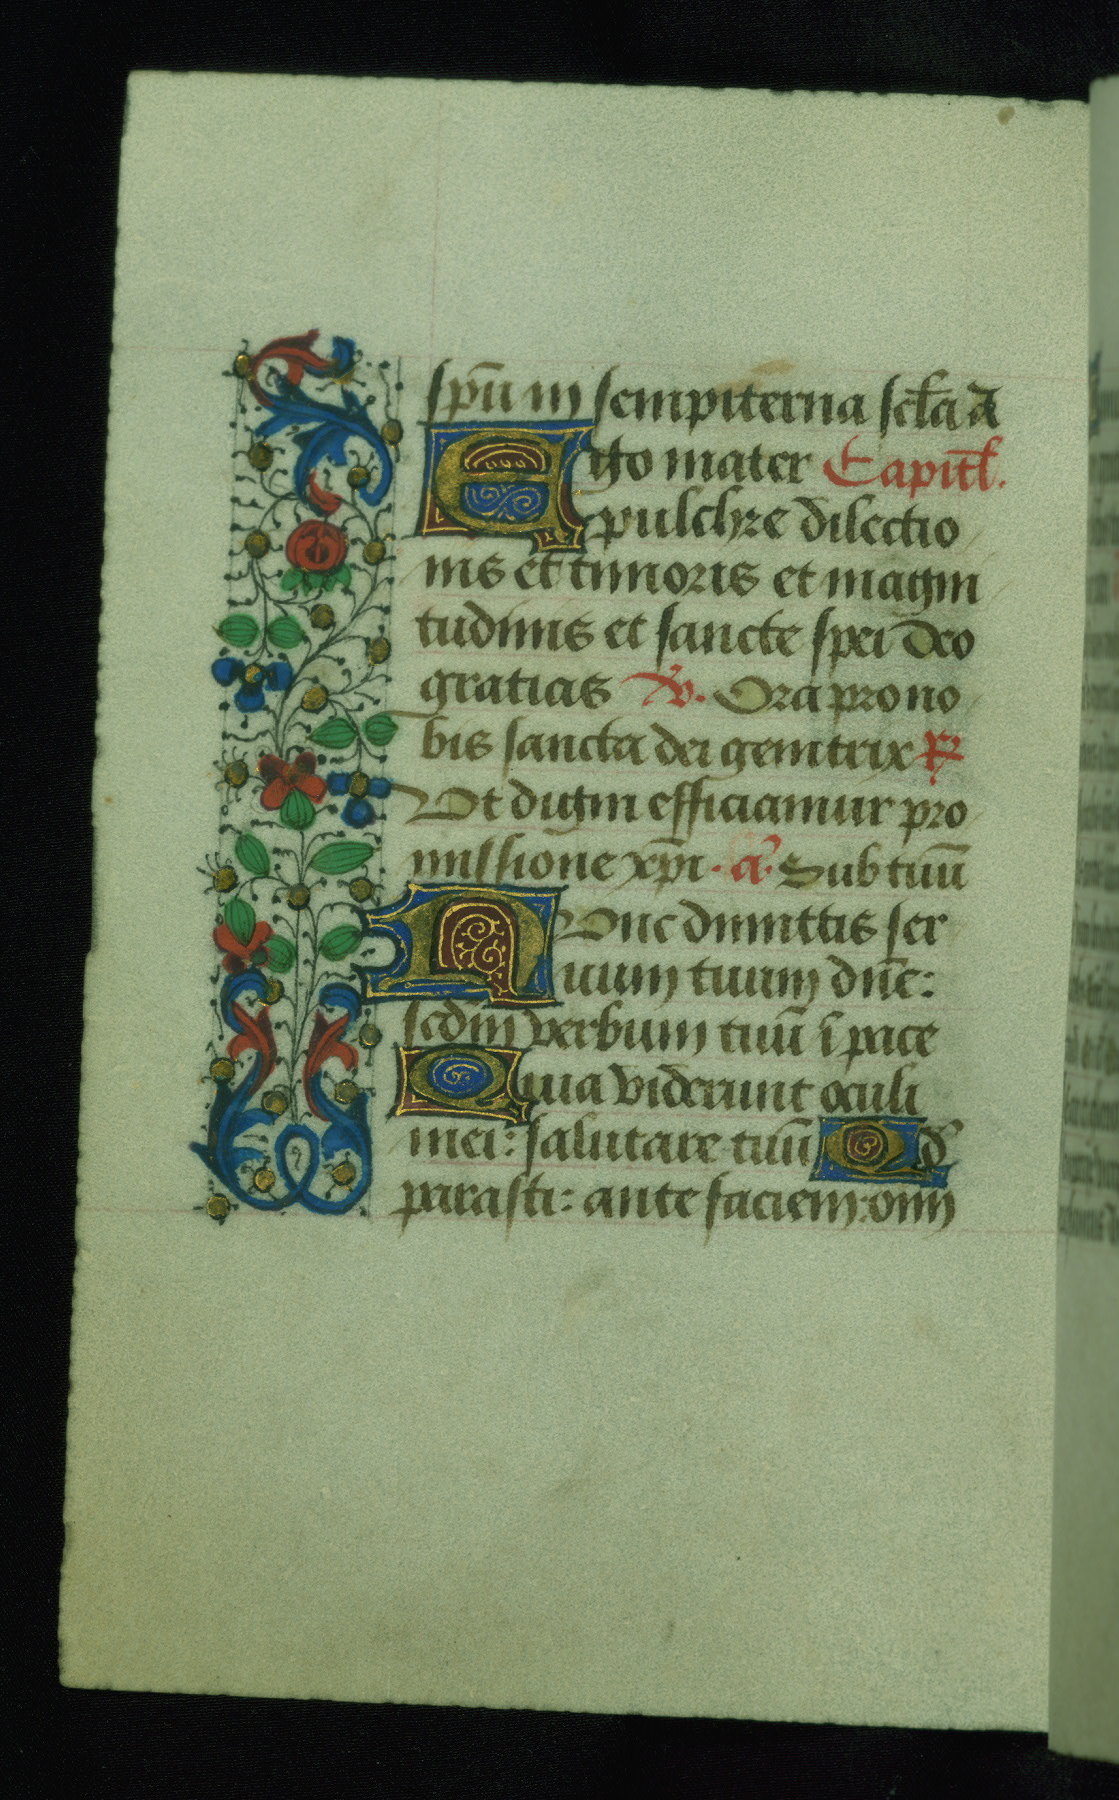 spũ in sempiterna scła Ame
Ego mater Capitł.
pulchre dilectio
nis et timoris et magni
tudinis et sancte spei Deo
gratias V. Ora pro no
bis sancta dei genitrix R
Vt digni efficiamur pro
missiõne xp̃i. a. Sub tuũ
Nunc dimittis ser
uum tuum dñe:
scdm̃ verbum tuũ ĩ pace
Quia viderunt oculi
mei: salutare tuũ Qd
parasti: ante faciem: om̃